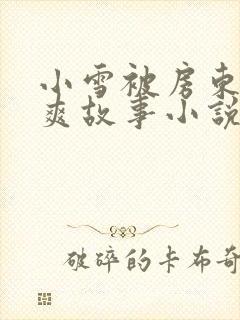 小雪被房东
爽故事小说
破碎的卡布奇